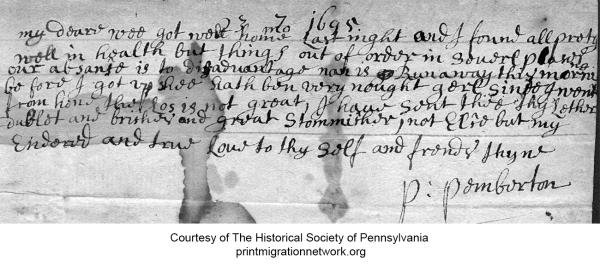 3 7 mo 1695
my deare wee got well home Last night and I found all prety
well in health but things out of order in severl places
our absanse is to disadvantage nan is Runaway this morn
be fore I got up shee hath ben very nought gerl since I went
from home their Los is not great, I have sent thee thy Lether
dublet and briches and great Stommisher, not Else but my
Endered and true Love to thy self and frends thyne
P: Pemberton
Courtesy of The Historical Society of Pennsylvania
printmigrationnetwork.org